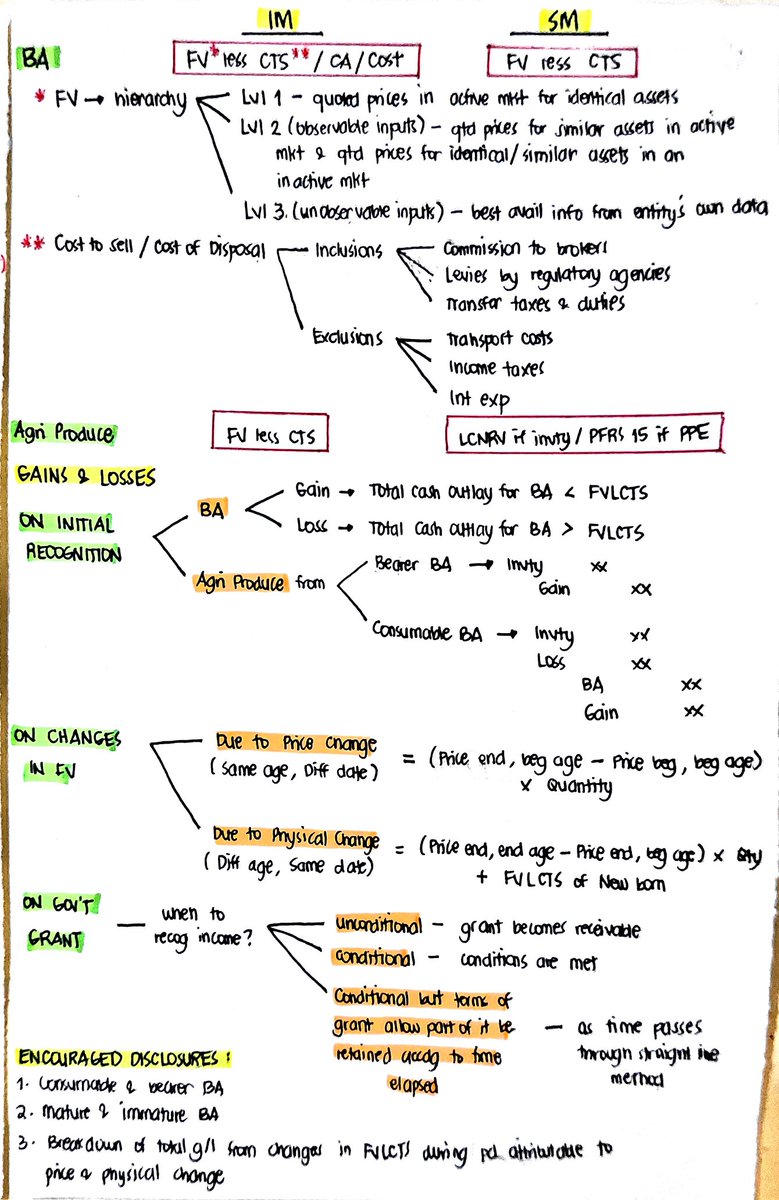 IM SM
BA FV* less CTS** / CA / Cost FV less CTS
* FV → hierarchy Lvl 1 - quoted prices in active mkt for identical assets
Lvl 2 (observable inputs) - qtd prices for similar assets in active
mkt & qtd prices for identical/similar assets in an
inactive mkt
Lvl 3. (unobservable inputs) - best avail info from entity's own data
** Cost to sell / cost of Disposal Inclusions Commission to brokers
Levies by regulatory agencies
Transfer taxes & duties
Exclusions Transport costs
Income taxes
Int exp
Agri Produce FV less CTS LCNRV if invty / PFRS 15 if PPE
GAINS & LOSSES
ON INITIAL
RECOGNITION
BA Gain → Total cash outlay for BA < FVLCTS
Loss → Total cash outlay for BA > FVLCTS
Agri Produce from Bearer BA → Invty xx
Gain xx
Consumable BA → Invty xx
Loss xx
BA xx
Gain xx
ON CHANGES
IN FV
Due to Price Change = (Price end, beg age - Price beg, beg age)
(Same age, Diff date) x Quantity
Due to Physical Change = (Price end, end age - Price end, beg age) x Qty
(Diff age, Same date) + FVLCTS of New born
ON GOV'T
GRANT
when to
recog income?
unconditional - grant becomes receivable
conditional - conditions are met
Conditional but terms of
grant allow part of it be
retained accdg to time
elapsed
- as time passes
through straight line
method
ENCOURAGED DISCLOSURES :
1. Consumable & bearer BA
2. Mature & immature BA
3. Breakdown of total g/l from changes in FVLCTS during pd attributable to
price & physical change